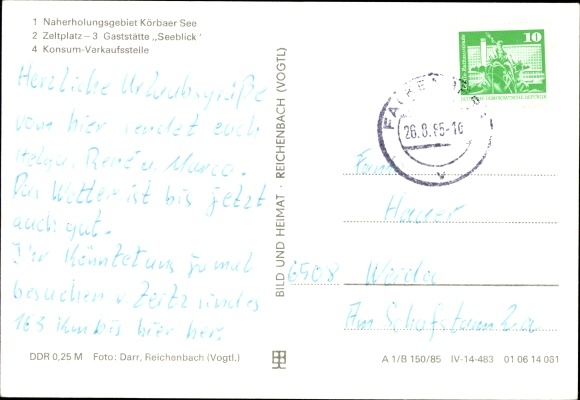 1 Naherholungsgebiet Körbaer See
2 Zeltplatz – 3 Gaststätte „Seeblick“
4 Konsum-Varkaufsstelle
Herzliche Urlaubsgrüße
von hier sendet euch
Helga, René u. Marco.
Das Wetter ist bis jetzt
auch gut.
Ihr könntet uns ja mal
besuchen v. Zeitz sind es
163 km bis hier her.
DDR 0,25 M Foto: Darr, Reichenbach (Vogtl.)
BILD UND HEIMAT · REICHENBACH (VOGTL)
10
DEUTSCHE DEMOKRATISCHE REPUBLIK
26.8.85-16
Fam.
6508 Weida
Am Schafstamm 2a
A 1/B 150/85 IV-14-483 01 06 14 031